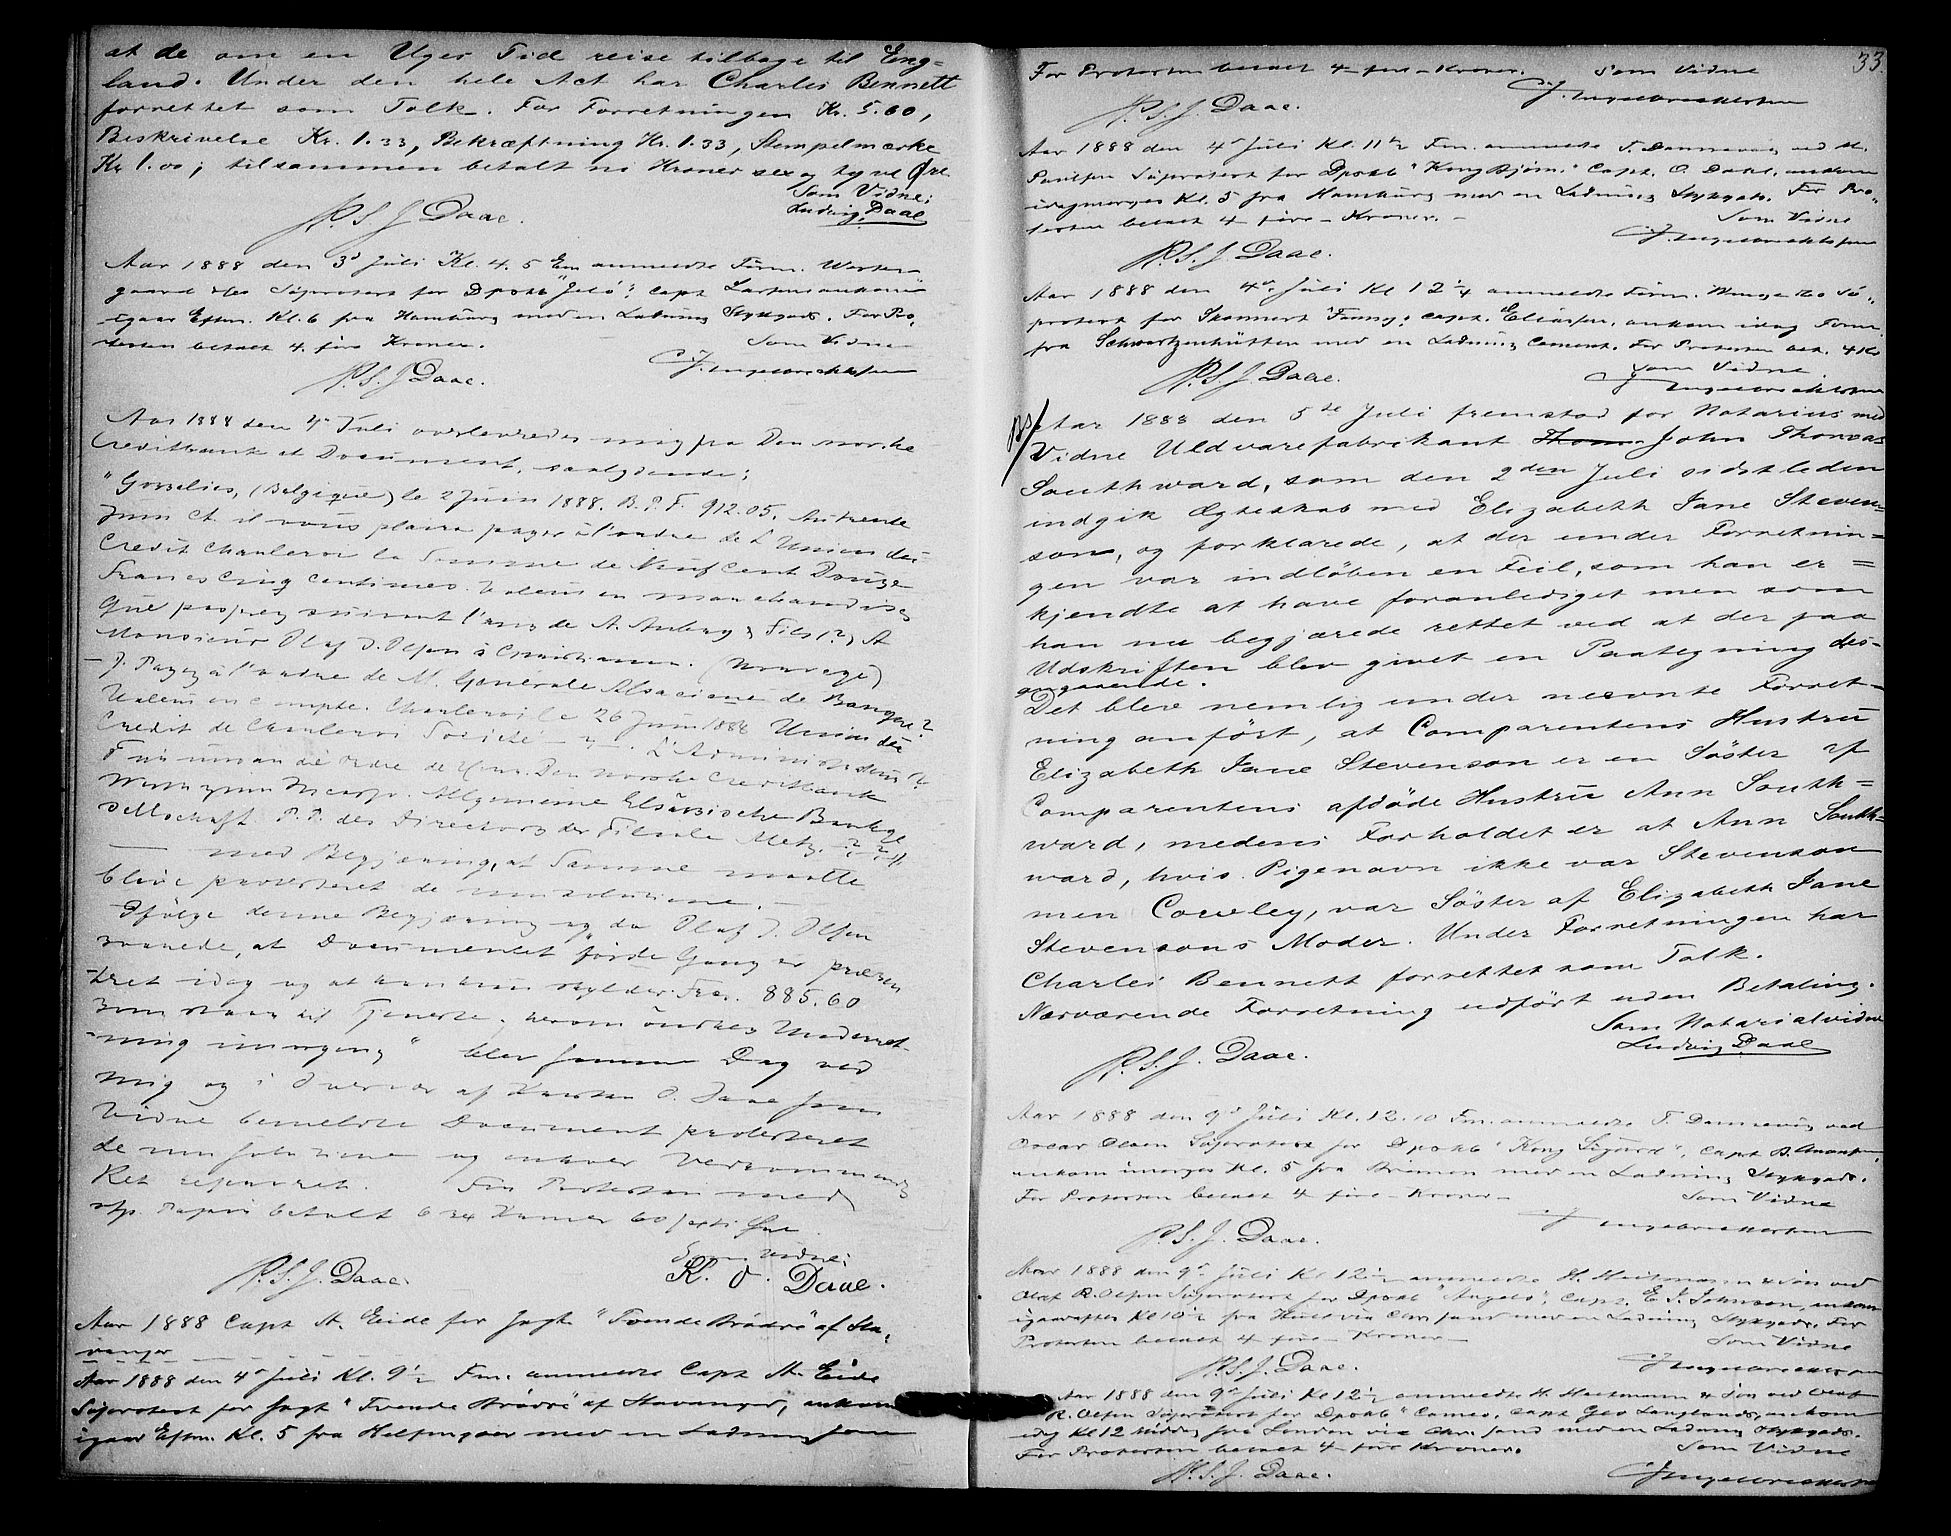 at de om en Uges Tid reise tilbage til Eng=
land. Under den hele Act har Charles Bennett
forrettet som Tolk. For Forretningen Kr. 5.60,
Beskrivelse Kr. 1.33, Bekræftning Kr. 1.33, Stempelmærke
Kr 1.00; tilsammen betalt ni Kroner sex og tyve Øre.
Som Vidne:
Ludvig Daae
P.S.J. Daae.
Aar 1888 den 3d Juli Kl. 4.5 Em anmeldte Firm. Wester-
gaard & Co Søprotest for Dpskb "Jelö", Capt Larsen ankom
igaar Efterm. Kl. 6 fra Hamburg med en Ladning Stykgods. For Pro-
testen betalt 4 fire Kroner.
Som Vidne
C J. Ingebrechtsen
P.S.J. Daae.
Aar 1888 den 4de Juli overleveredes mig fra Den norske
Creditbank et Document, saalydende:
"Gosselies, (Belgique) le 2 Juin 1888. B.P.F. 912.05. Au trente
Juin ct. il vous plaira payer à l'ordre de L'Union du
Credit Charleroi la Somme de Neuf Cent Douze
Francs Cinq centimes. Valeur en marchandises
que passerez suivant l'avis de A. Aubry & Fils (?) A
Monsieur Olaf J. Olsen à Christiania. (Norvege)
– J. Payez à l'ordre de M. Generale Alsacienne de Banque?
Valeur en compte. Charleroi le 26 Juin 1888 Union du
Credit de Charleroi Societé – L'Administrateur (?)
Für uns an die Ordre de Herrn. Den norske Creditbank
Werth zum Incasso. Allgemeine Elsässische Bankge
sellschaft P.P. des Directors der Filiale Metz. ? ?"
– med Begjæring, at Samme maatte
blive protesteret de non solutione. –
Ifølge denne Begjæring og da Olaf J. Olsen
svarede, at "Documentet første Gang er præsen
teret idag og at han kun skylder Frcs. 885.60
som staar til Tjeneste, herom ønskes Underret-
ning imorgen," blev samme Dag ved
mig og i Overvær af Karsten O. Daae som
Vidne bemeldte Document protesteret
de non solutione og enhver Vedkommende
Ret reserveret. For Protesten med
stp. Papir betalt 6 sex Kroner 60 sexti Øre
Som Vidne:
K. O. Daae.
P.S.J. Daae.
Aar 1888 Capt M. Eide for Jagt "Tvende Brødre" af Sta-
vanger
Aar 1888 den 4de Juli Kl. 9½ Fm. anmeldte Capt M. Eide
Søprotest for Jagt "Tvende Brødre" af Stavanger, ankom
igaar Efterm. Kl. 5 fra Helsingør med en Ladning
33.
For Protesten betalt 4 – fire – Kroner.
Som Vidne
C J. Ingebrechtsen
P.S.J. Daae.
Aar 1888 den 4de Juli Kl. 11½ Fm. anmeldte T. Dannevig ved M.
Poulsen Søprotest for Dpskb "Kong Bjørn." Capt. O. Dahl, ankom
idagmorges Kl. 5 fra Hamburg med en Ladning Stykgods. For Pro-
testen betalt 4 – fire – Kroner. –
Som Vidne
C J. Ingebrechtsen
P.S.J. Daae.
Aar 1888 den 4de Juli Kl 12¼ anmeldte Firm. Winge & Co Sø-
protest for Skonnert "Fanny", Capt. Eliassen, ankom idag Form.
fra Schwartzenhütten med en Ladning Cement. For Protesten bet. 4 Kr
Som Vidne
C J. Ingebrechtsen
P.S.J. Daae.
Bs/
Aar 1888 den 5te Juli fremstod for Notarius med
Vidne Uldvarefabrikant Thom John Thomas
Southward, som den 2den Juli sidstleden
indgik Ægteskab med Elizabeth Jane Steven=
son, og forklarede, at der under Forretnin=
gen var indløben en Feil, som han er=
kjendte at have foranlediget men som
han nu begjærede rettet ved at der paa
Udskriften blev givet en Paategning des-
angaaende.
Det blev nemlig under nævnte Forret-
ning anført, at Comparentens Hustru
Elizabeth Jane Stevenson er en Søster af
Comparentens afdøde Hustru Ann South=
ward, medens Forholdet er at Ann South=
ward, hvis Pigenavn ikke var Stevenson
men Cowley, var Søster af Elizabeth Jane
Stevensons Moder. Under Forretningen har
Charles Bennett forrettet som Tolk.
Nærværende Forretning udført uden Betaling.
Som Notarialvidne
Ludvig Daae
P.S.J. Daae.
Aar 1888 den 9de Juli Kl. 12.10 Em. anmeldte T. Dannevig ved
Oscar Olsen Søprotest for Dpskb "Kong Sigurd", Capt B.
ankom imorges Kl. 5 fra Bremen med en Ladning Stykgods.
For Protesten betalt 4 fire – Kroner –
Som Vidne
C J. Ingebrechtsen
P.S.J. Daae.
Aar 1888 den 9de Juli Kl 12½ anmeldte H. Heitmann & Søn ved
Olaf R. Olsen Søprotest for Dpskb "Angelo", Capt. E I. Johnson, ankom
igaaraftes Kl 10½ fra Hull via Chrsand med en Ladning Stykgods. For
Protesten betalt 4 fire – Kroner –
Som Vidne
C J Ingebrechtsen
P.S.J. Daae.
Aar 1888 den 9de Juli Kl 12½ anmeldte H. Heitmann & Søn ved Olaf
R. Olsen Søprotest for Dpskb "Cameo", Capt Geo Langlands, ankom
idag Kl 12 Middag fra London via Chr.sand med en Ladning Stykgods.
For Protesten betalt 4 fire Kroner.
Som Vidne
C J Ingebrechtsen
P.S.J. Daae.